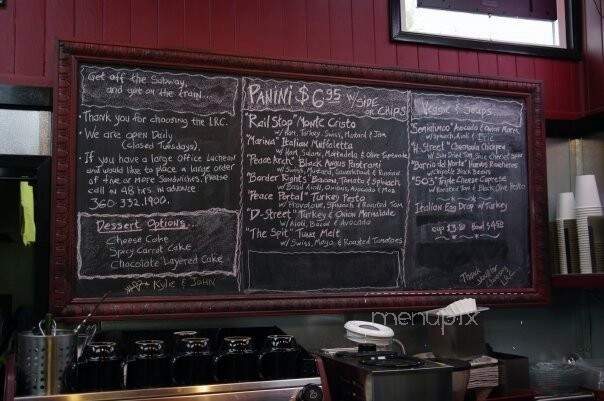 Get off the Subway,
and get on the Train...
Thank you for choosing the I.R.C.
We are open Daily
(Closed Tuesdays).
If you have a large Office Luncheon
and would like to place a large order
of five or more Sandwiches, Please
call in 48 hrs. in advance.
360.332.1900.
Dessert Options.
Cheese Cake
Spicy Carrot Cake
Chocolate Layered Cake
Kylie & John
PANINI $6.95 w/ SIDE or CHIPS
"Rail Stop" Monte Cristo
w/ Ham, Turkey, Swiss, Mustard & Jam
"Marina" Italian Muffoletta
w/ Ham, Salami, Mortadella & Olive Tapenade
"Peace Arch" Black Angus Pastrami
w/ Swiss, Mustard, Sauerkraut & Russian
"Border Rights" Bacon, Tomato & Spinach
w/ Basil Aioli, Onions, Avocado & Mea
"Peace Portal" Turkey Pesto
w/ Provolone, Spinach & Roasted Tom
"D-Street" Turkey & Onion Marmalade
w/ Aioli, Bacon & Avocado
"The Spit" Tuna Melt
w/ Swiss, Mayo, & Roasted Tomatoes
Veggie & Soups
"Semiahmoo" Avocado & Onion Marm.
w/ Spinach, Aioli &
"H. Street" Chermoula Chickpea
w/ Sun Dried Tom.
w/ Chipotle Black Beans
"503" Triple Cheese Caprese
w/ Roasted Tom & Black Olive Pesto
Italian Egg Drop w/ Turkey
cup 3.50 Bowl $4.50
Thank
I.R.C.
menupix